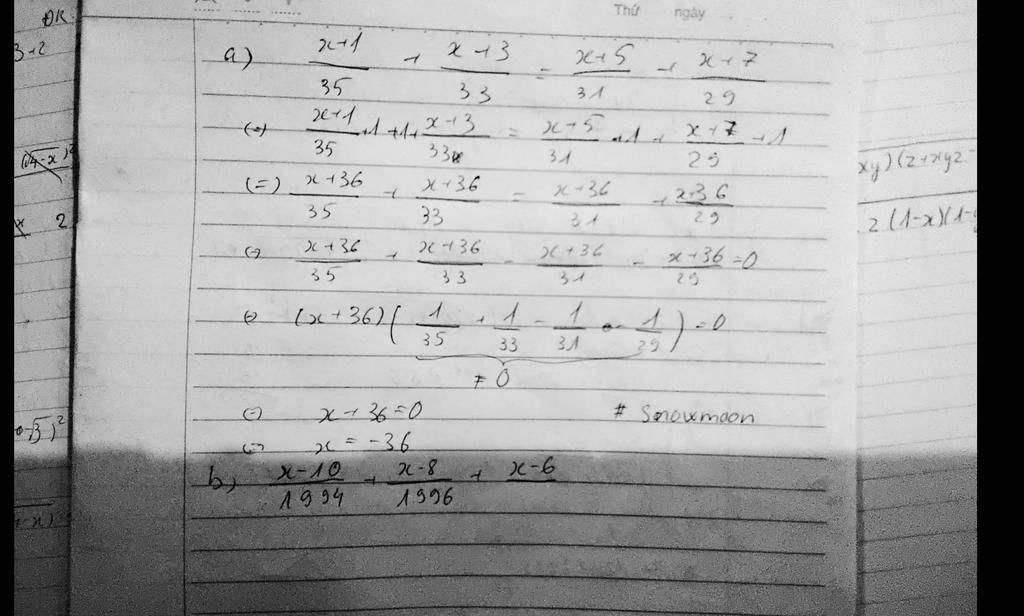 Thứ ngày
ĐK
3+2
a) \frac{x+1}{35} + \frac{x+3}{33} = \frac{x+5}{31} + \frac{x+7}{29}
(=) \frac{x+1}{35} +1 +1+ \frac{x+3}{33} = \frac{x+5}{31} +1 + \frac{x+7}{29} +1
(=) \frac{x+36}{35} + \frac{x+36}{33} = \frac{x+36}{31} + \frac{x+36}{29}
(=) \frac{x+36}{35} + \frac{x+36}{33} - \frac{x+36}{31} - \frac{x+36}{29} =0
(=) (x+36)( \frac{1}{35} + \frac{1}{33} - \frac{1}{31} - \frac{1}{29} ) =0
≠ 0
(=) x+36=0 # Snowmoon
(=) x = -36
b) \frac{x-10}{1994} + \frac{x-8}{1996} + x-6
xy)(z+xyz
z(1-x)(1-